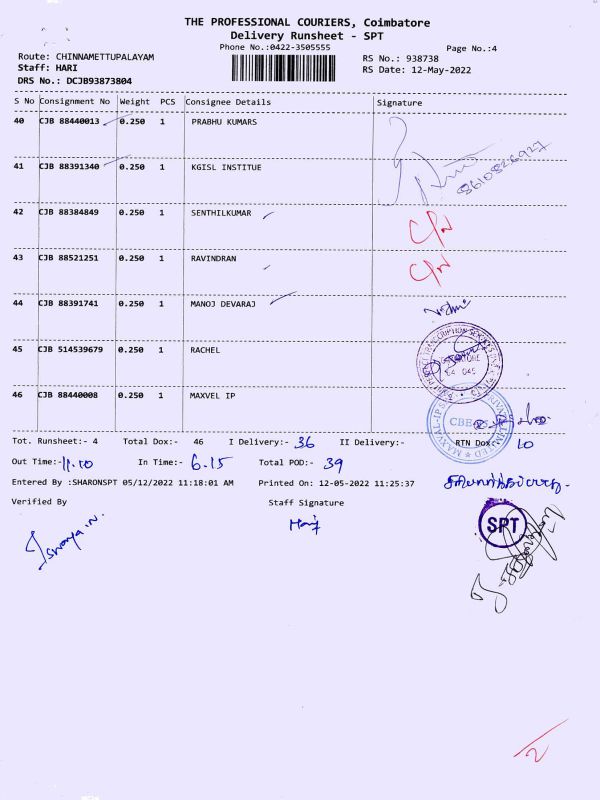 THE PROFESSIONAL COURIERS, Coimbatore
Delivery Runsheet - SPT
Phone No.:0422-3505555
Page No.:4
Route: CHINNAMETTUPALAYAM
RS No.: 938738
Staff: HARI
RS Date: 12-May-2022
DRS No.: DCJB93873804
S No Consignment No Weight PCS Consignee Details Signature
40 CJB 88440013 0.250 1 PRABHU KUMARS
41 CJB 88391340 0.250 1 KGISL INSTITUE
8610826927
42 CJB 88384849 0.250 1 SENTHILKUMAR
43 CJB 88521251 0.250 1 RAVINDRAN
44 CJB 88391741 0.250 1 MANOJ DEVARAJ
45 CJB 514539679 0.250 1 RACHEL
46 CJB 88440008 0.250 1 MAXVEL IP
Tot. Runsheet:- 4 Total Dox:- 46 I Delivery:- 36 II Delivery:- RTN Dox:- 10
Out Time:- 11.10 In Time:- 6.15 Total POD:- 39
Entered By :SHARONSPT 05/12/2022 11:18:01 AM Printed On: 12-05-2022 11:25:37
Verified By Staff Signature
SPT
2